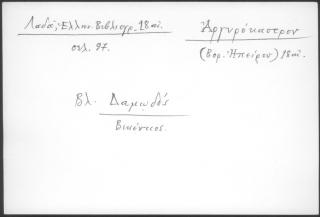 Λαδά, Ἑλλην. Βιβλιογρ. 18 αἰ.
σελ. 97.
Ἀργυρόκαστρον
(Βορ. Ἠπείρου) 18 αἰ.
Βλ. Δαμωδός
Βικέντιος.